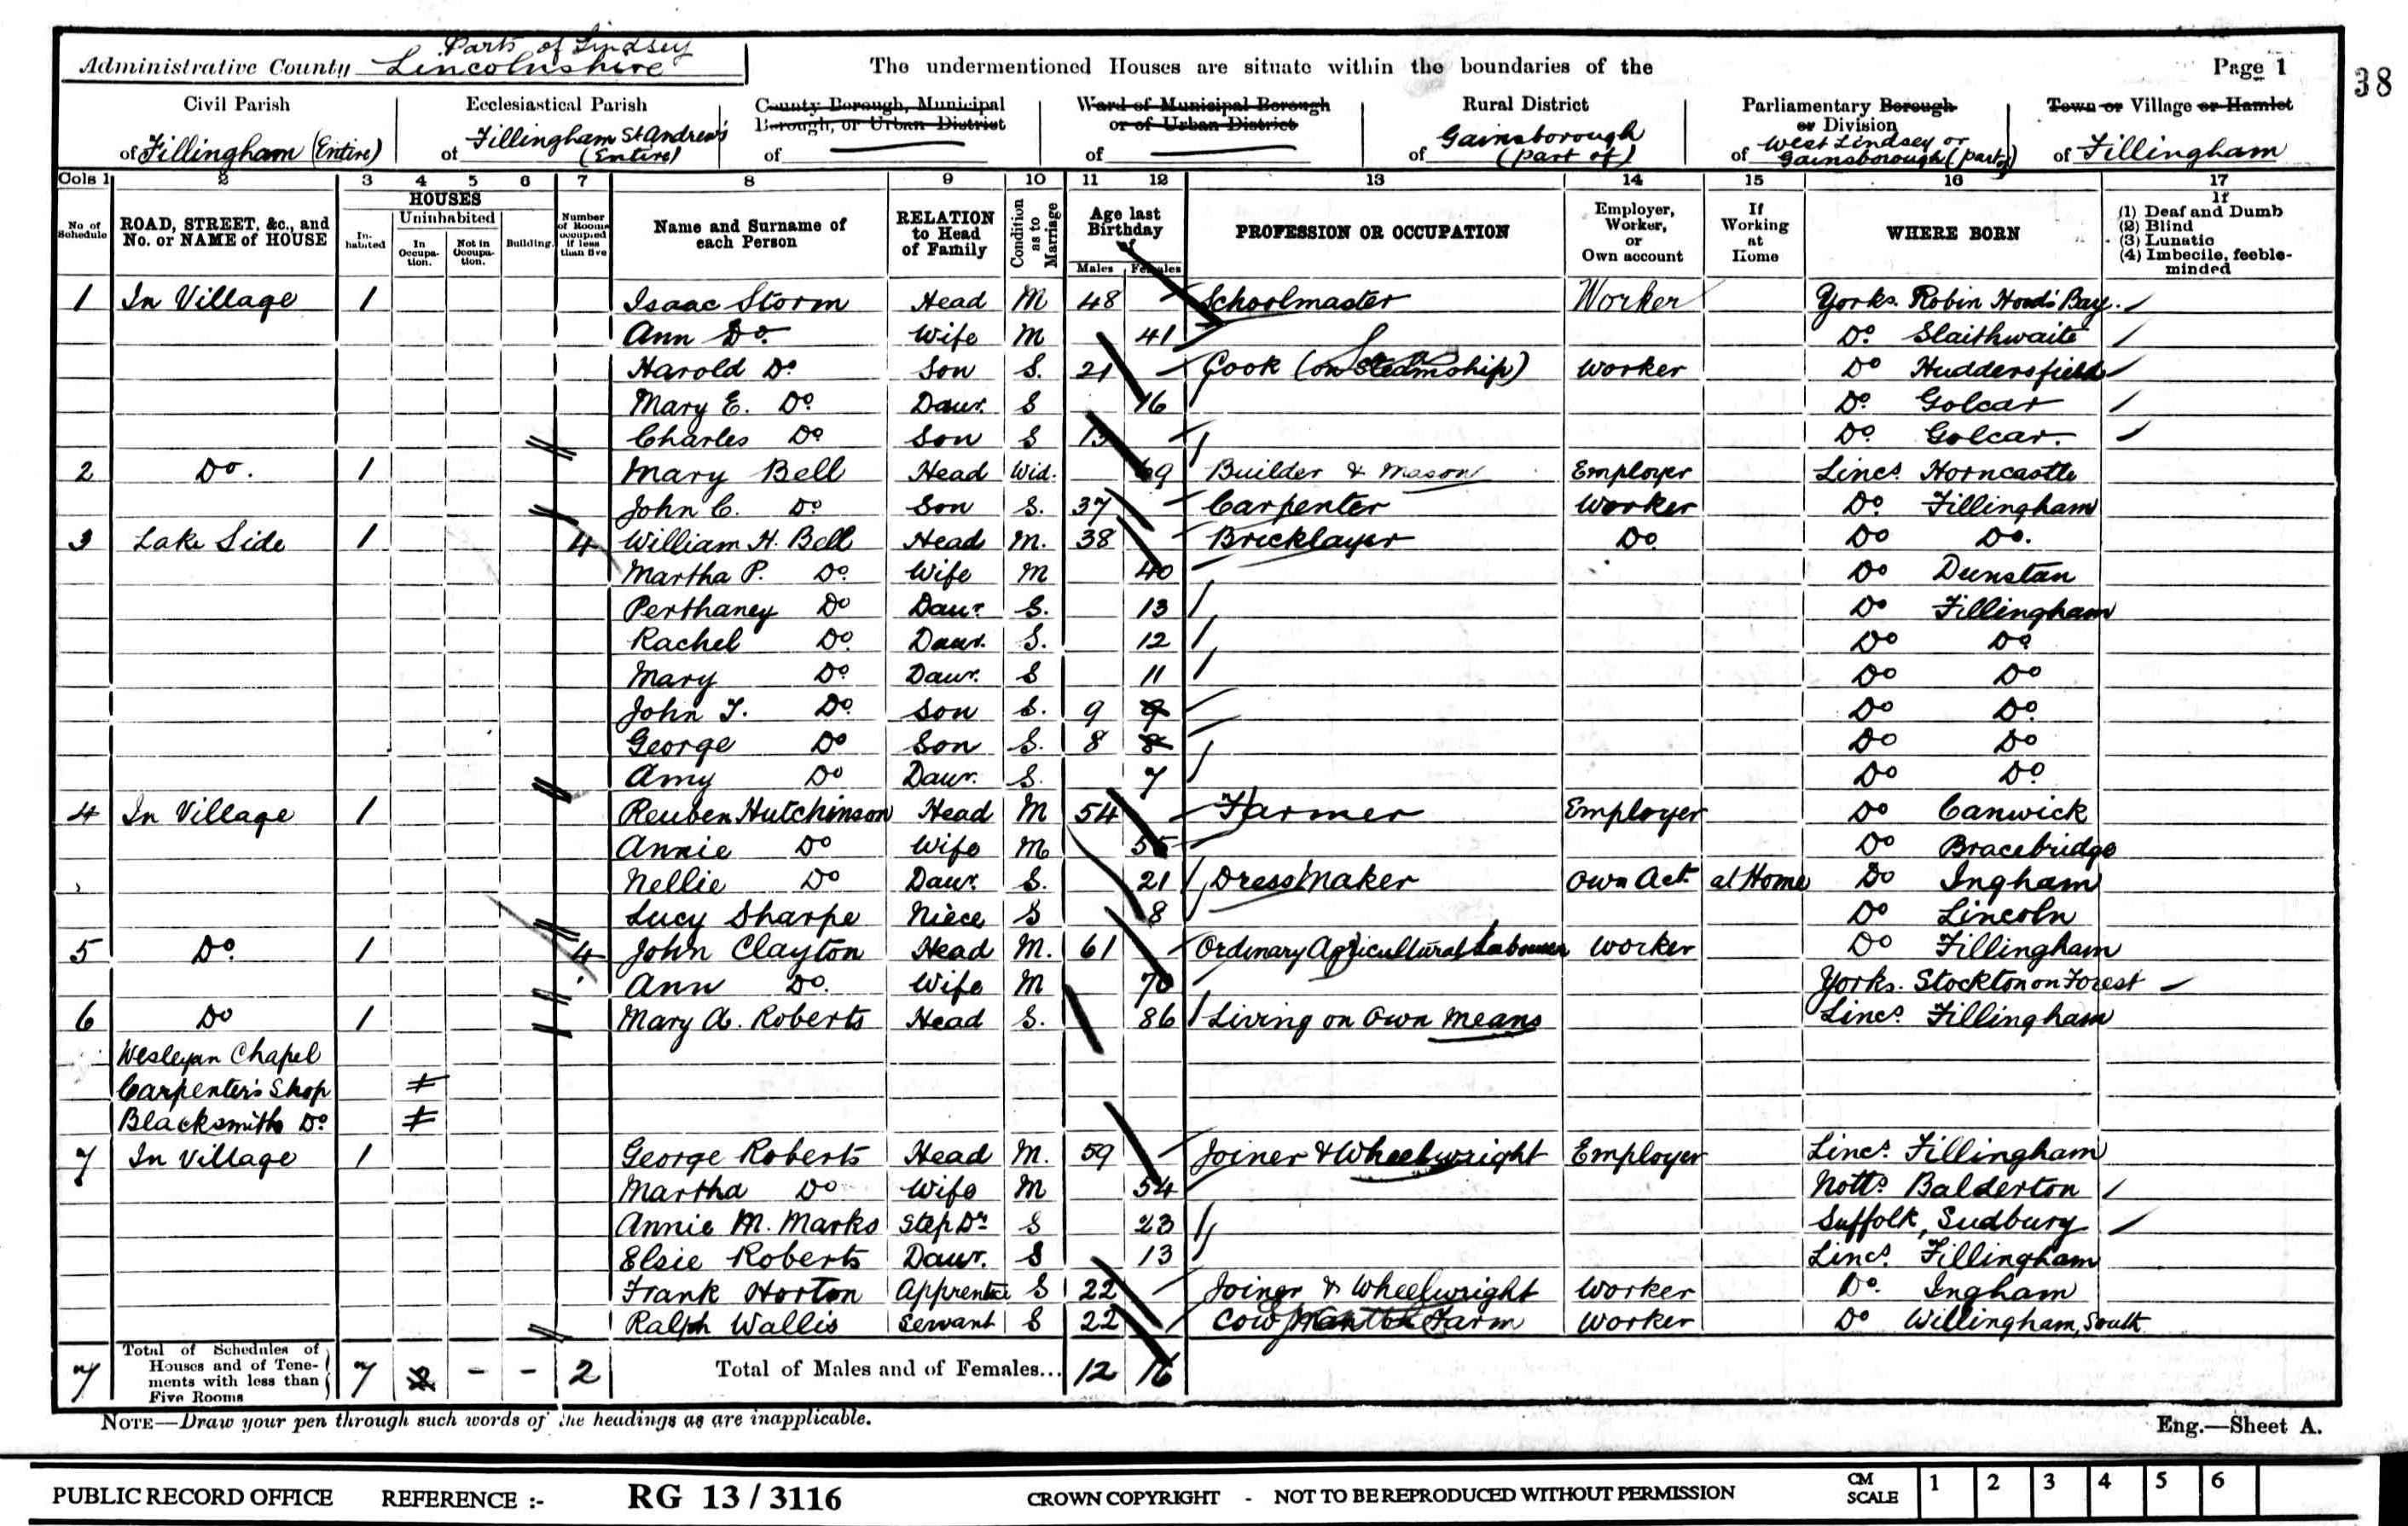 Parts of Lindsey
Administrative County Lincolnshire The undermentioned Houses are situate within the boundaries of the Page 1
38
Civil Parish Ecclesiastical Parish County Borough, Municipal Borough, or Urban District Ward of Municipal Borough or of Urban District Rural District Parliamentary Borough or Division Town or Village or Hamlet
of Fillingham (Entire) of Fillingham St Andrew's (Entire) of of of Gainsborough (part of) of West Lindsey or Gainsborough (part of) of Fillingham
Cols 1 2 3 4 5 6 7 8 9 10 11 12 13 14 15 16 17
No of Schedule ROAD, STREET, &c., and No. or NAME of HOUSE HOUSES Inhabited Uninhabited In Occupation. Not in Occupation. Building. Number of Rooms occupied if less than five Name and Surname of each Person RELATION to Head of Family Condition as to Marriage Age last Birthday of Males Females PROFESSION OR OCCUPATION Employer, Worker, or Own account If Working at Home WHERE BORN If (1) Deaf and Dumb (2) Blind (3) Lunatic (4) Imbecile, feeble-minded
1 In Village 1 Isaac Storm Head M 48 Schoolmaster Worker Yorks. Robin Hood's Bay
Ann Do. Wife M 41 Do. Slaithwaite
Harold Do. Son S. 21 Cook (on Steamship) Worker Do Huddersfield
Mary E. Do. Daur. S 16 Do. Golcar
Charles Do. Son S 13 Do. Golcar.
2 Do. 1 Mary Bell Head Wid. 69 Builder & Mason Employer Lincs. Horncastle
John C. Do Son S. 37 Carpenter Worker Do. Fillingham
3 Lake Side 1 4 William H. Bell Head M. 38 Bricklayer Do. Do Do.
Martha P. Do. Wife M 40 Do Dunstan
Perthaney Do Daur. S. 13 Do Fillingham
Rachel Do. Daur. S. 12 Do Do
Mary Do. Daur. S 11 Do Do
John T. Do. Son S. 9 9 Do Do.
George Do Son S. 8 8 Do Do
Amy Do Daur. S. 7 Do Do.
4 In Village 1 Reuben Hutchinson Head M 54 Farmer Employer Do Canwick
Annie Do Wife M 55 Do Bracebridge
Nellie Do Daur. S. 21 Dressmaker Own Act. at Home Do Ingham
Lucy Sharpe Niece S 8 Do Lincoln
5 Do. 1 4 John Clayton Head M. 61 Ordinary Agricultural Labourer Worker Do Fillingham
Ann Do. Wife M 70 Yorks. Stockton on Forest
6 Do 1 Mary A. Roberts Head S. 86 Living on Own means Lincs. Fillingham
Wesleyan Chapel
Carpenter's Shop
Blacksmiths Do.
7 In Village 1 George Roberts Head M. 59 Joiner & Wheelwright Employer Lincs. Fillingham
Martha Do Wife M 54 Notts. Balderton
Annie M. Marks Step Dr. S 23 Suffolk, Sudbury
Elsie Roberts Daur. S 13 Lincs. Fillingham
Frank Horton Apprentice S 22 Joiner & Wheelwright Worker Do. Ingham
Ralph Wallis Servant S 22 Cowman on Farm Worker Do Willingham, South
7 Total of Schedules of Houses and of Tenements with less than Five Rooms 7 2 - - 2 Total of Males and of Females... 12 16
NOTE—Draw your pen through such words of the headings as are inapplicable. Eng.—Sheet A.
PUBLIC RECORD OFFICE REFERENCE :- RG 13 / 3116 CROWN COPYRIGHT - NOT TO BE REPRODUCED WITHOUT PERMISSION CM SCALE 1 2 3 4 5 6